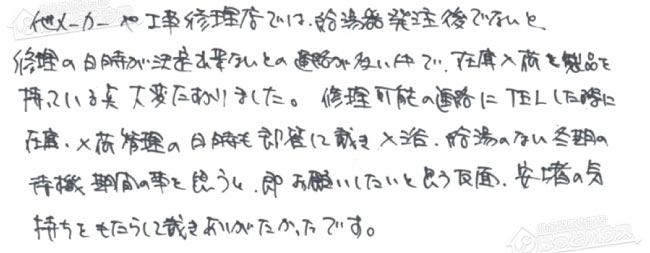 他メーカーや工事修理店では、給湯器発注後でないと
修理の日時が決定出来ないとの連絡が多い中で、在庫入荷を製品を
持っている点大変たすかりました。修理可能の連絡にTELした際に
在庫、入荷管理の日時も即答して戴き入浴、給湯のない冬期の
待機期間の事を思うと、即お願いしたいと思う反面、安堵の気
持ちをもたらして戴きありがたかったです。